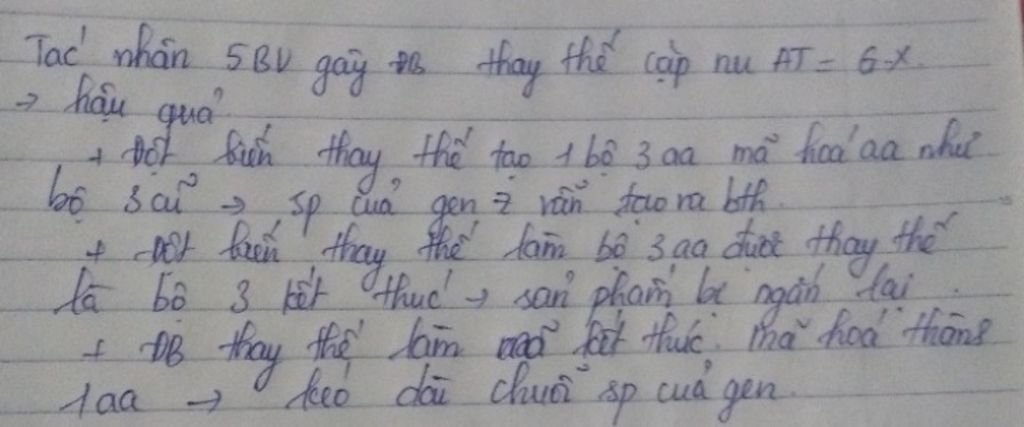 Tác nhân 5BU gây ĐB thay thế cặp nu AT = G-X.
→ hậu quả
+ Đột biến thay thế tạo 1 bộ 3 aa mã hoá aa như
bộ 3 cũ → sp của gen vẫn tạo ra bth.
+ Đột biến thay thế làm bộ 3 aa được thay thế
là bộ 3 kết thúc → sản phẩm bị ngắn lại.
+ ĐB thay thế làm mã kết thúc mã hoá thành
1aa → kéo dài chuỗi sp của gen.